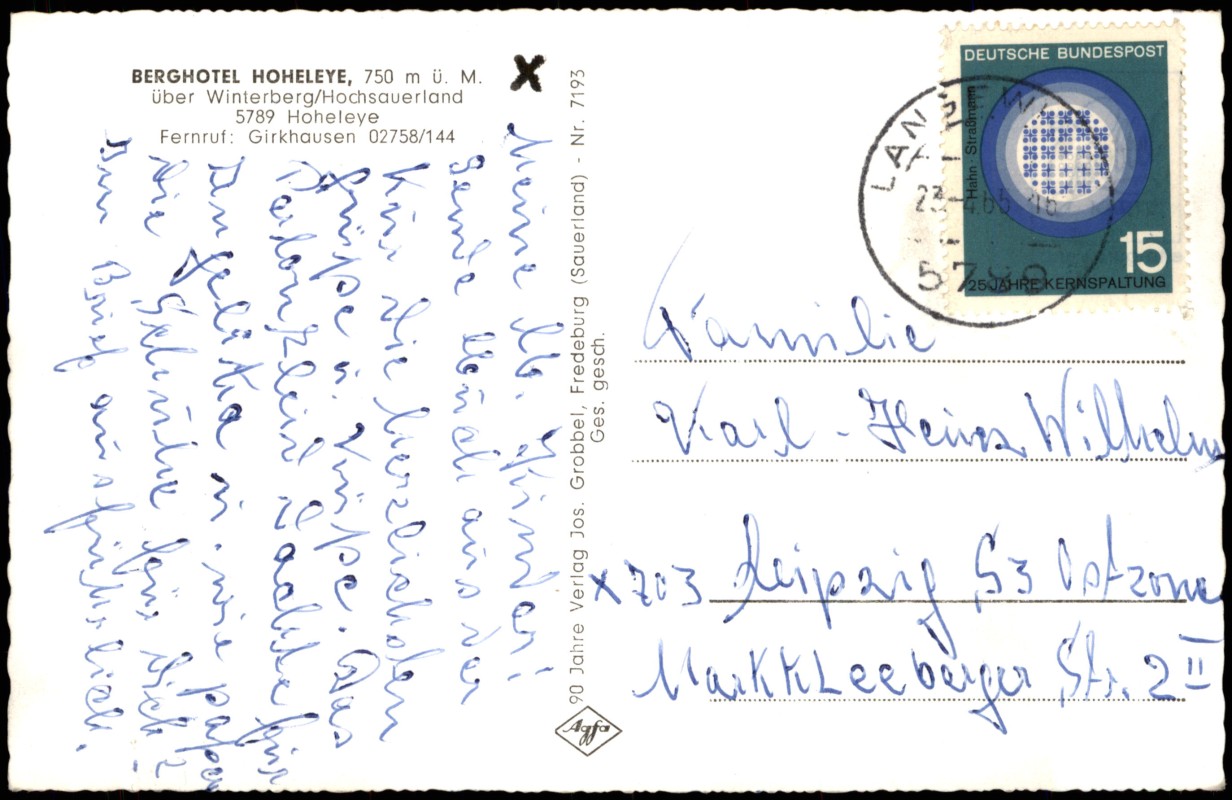 BERGHOTEL HOHELEYE, 750 m ü. M.
über Winterberg/Hochsauerland
5789 Hoheleye
Fernruf: Girkhausen 02758/144
X
Meine lb. Kinder!
Sende Euch aus der
Kur die herzlichsten
Grüße u. Küsse. Das
Perlonkleid dachte für
An u. wie passen
die Schuhe für Dich?
Brief ausführlich.
90 Jahre Verlag Jos. Grobbel, Fredeburg (Sauerland) - Nr. 7193
Ges. gesch.
Agfa
DEUTSCHE BUNDESPOST
Hahn · Straßmann
15
25 JAHRE KERNSPALTUNG
Familie
Karl-Heinz Wilhelm
X703 Leipzig S3 Ostzone
Markkleeberger Str. 2 II